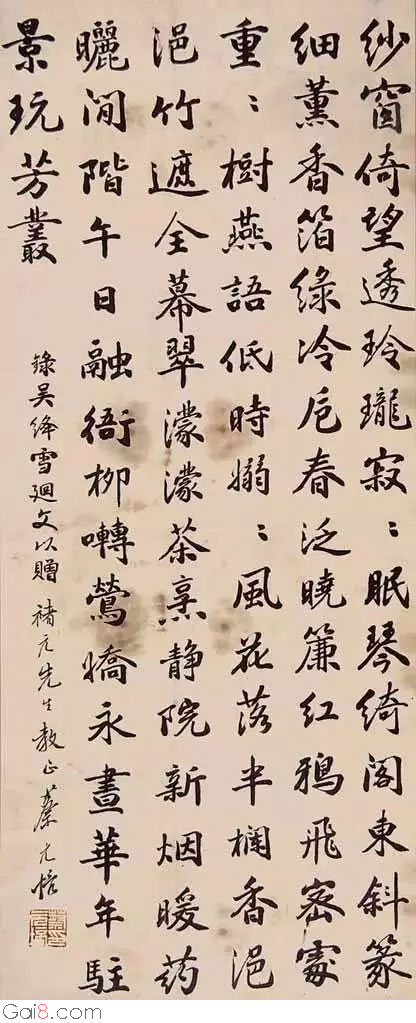 紗窗倚望透玲瓏寂〻眠琴綺閣東斜篆
細薰香箔綠冷卮春泛曉簾紅鴉飛密處
重〻樹燕語低時嫋〻風花落半欄香浥
浥竹遮全幕翠濛濛茶烹静院新烟暖药
曬閒階午日融銜柳囀鶯嬌永晝華年駐
景玩芳叢
錄吴絳雪廻文以贈 元先生教正 蔡元培
Gai8.com